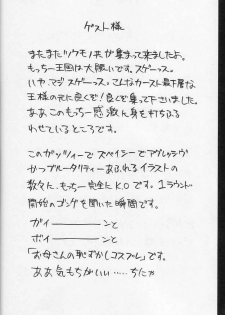 ゲスト様
またまたツウモノ共が集まって来ましたよ。
もっちー王国は大賑いです。スゲーっス。
いや、マジスゲーっス。こんなカースト最下層な
王様の元に良くぞ！良くぞ集って下さいました。
ああこのもっちー感激に身を打ちふる
わせているところです。
このガッツィーでスペイシーでアグレッシヴ
かつブルータリティーあふれるイラストの
数々に、もっちー完全にK.O.です。1ラウンド
開始のゴングを聞いた瞬間です。
ガイ――――ンと
ボイ――――ンと
「お母さんの恥ずかしコスプレ」です。
ああ気もちがいい……